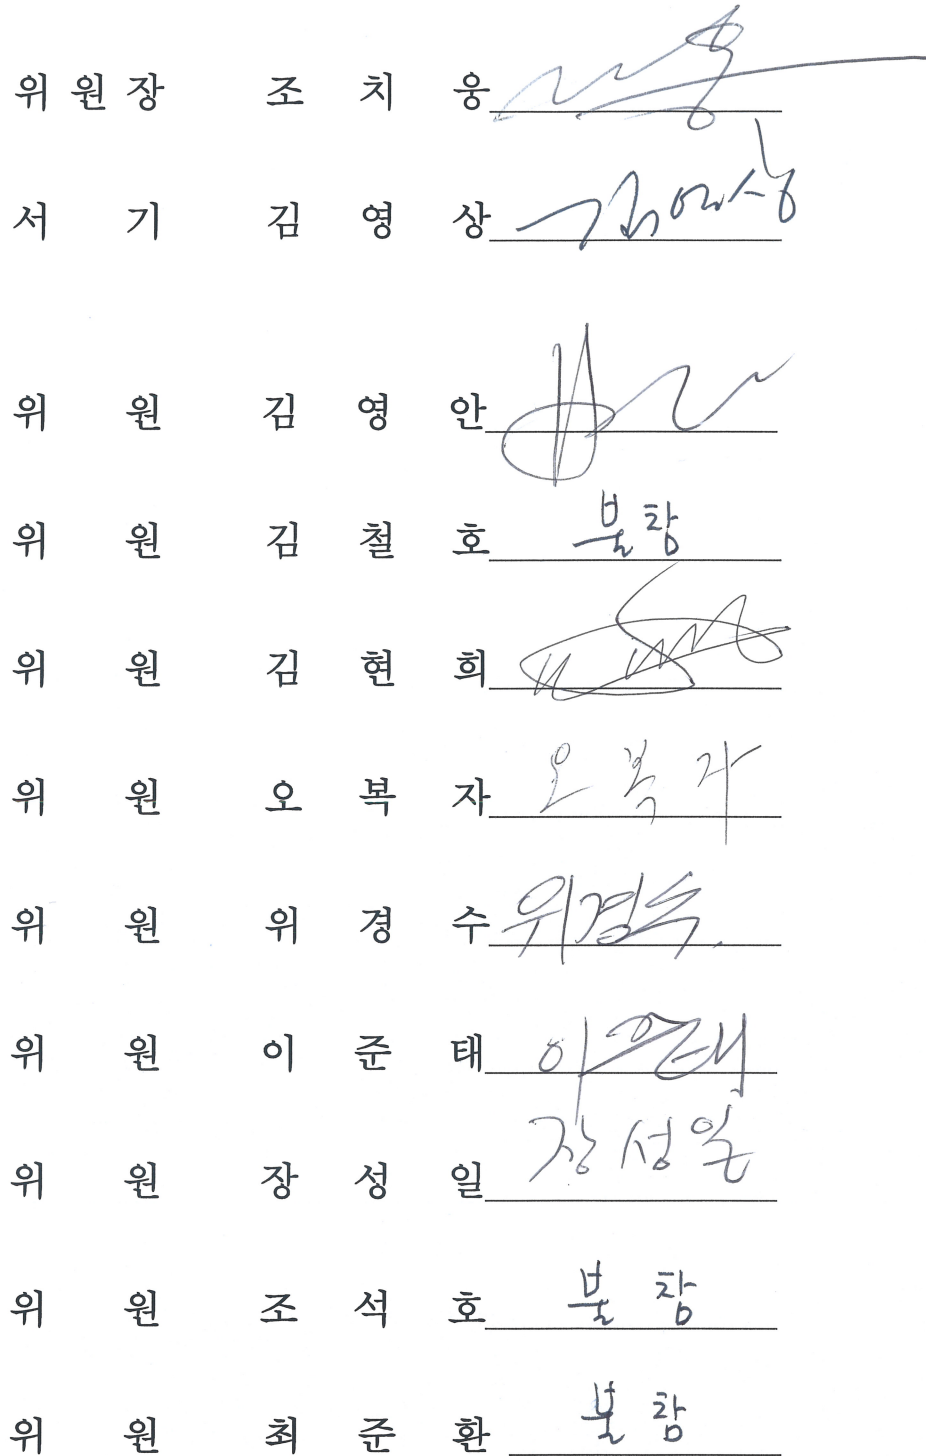 위 원 장 조 치 웅
서 기 김 영 상 김영상
위 원 김 영 안
위 원 김 철 호 불참
위 원 김 현 희
위 원 오 복 자 오 복 자
위 원 위 경 수 위경수
위 원 이 준 태 이준태
위 원 장 성 일 장성일
위 원 조 석 호 불 참
위 원 최 준 환 불 참